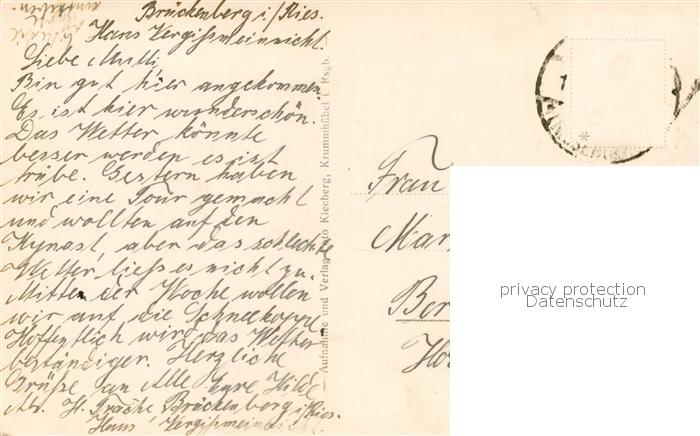 Brückenberg i/Ries.
Haus Vergißmeinnicht.
Liebe Mutti,
Bin gut hier angekommen.
Es ist hier wunderschön.
Das Wetter könnte
besser werden es ist
trübe. Gestern haben
wir eine Tour gemacht
und wollten auf den
Kynast, aber das schlechte
Wetter ließ es nicht zu.
Mitte der Woche wollen
wir auf die Schneekoppe.
Hoffentlich wird das Wetter
beständiger. Herzliche
Grüße an Alle Eure Hilde
Abs. H. Brückenberg i/Ries.
Haus Vergißmeinnicht
Aufnahme und Verlag Kleeberg, Krummhübel i. Rsgb.
Frau
privacy protection
Datenschutz